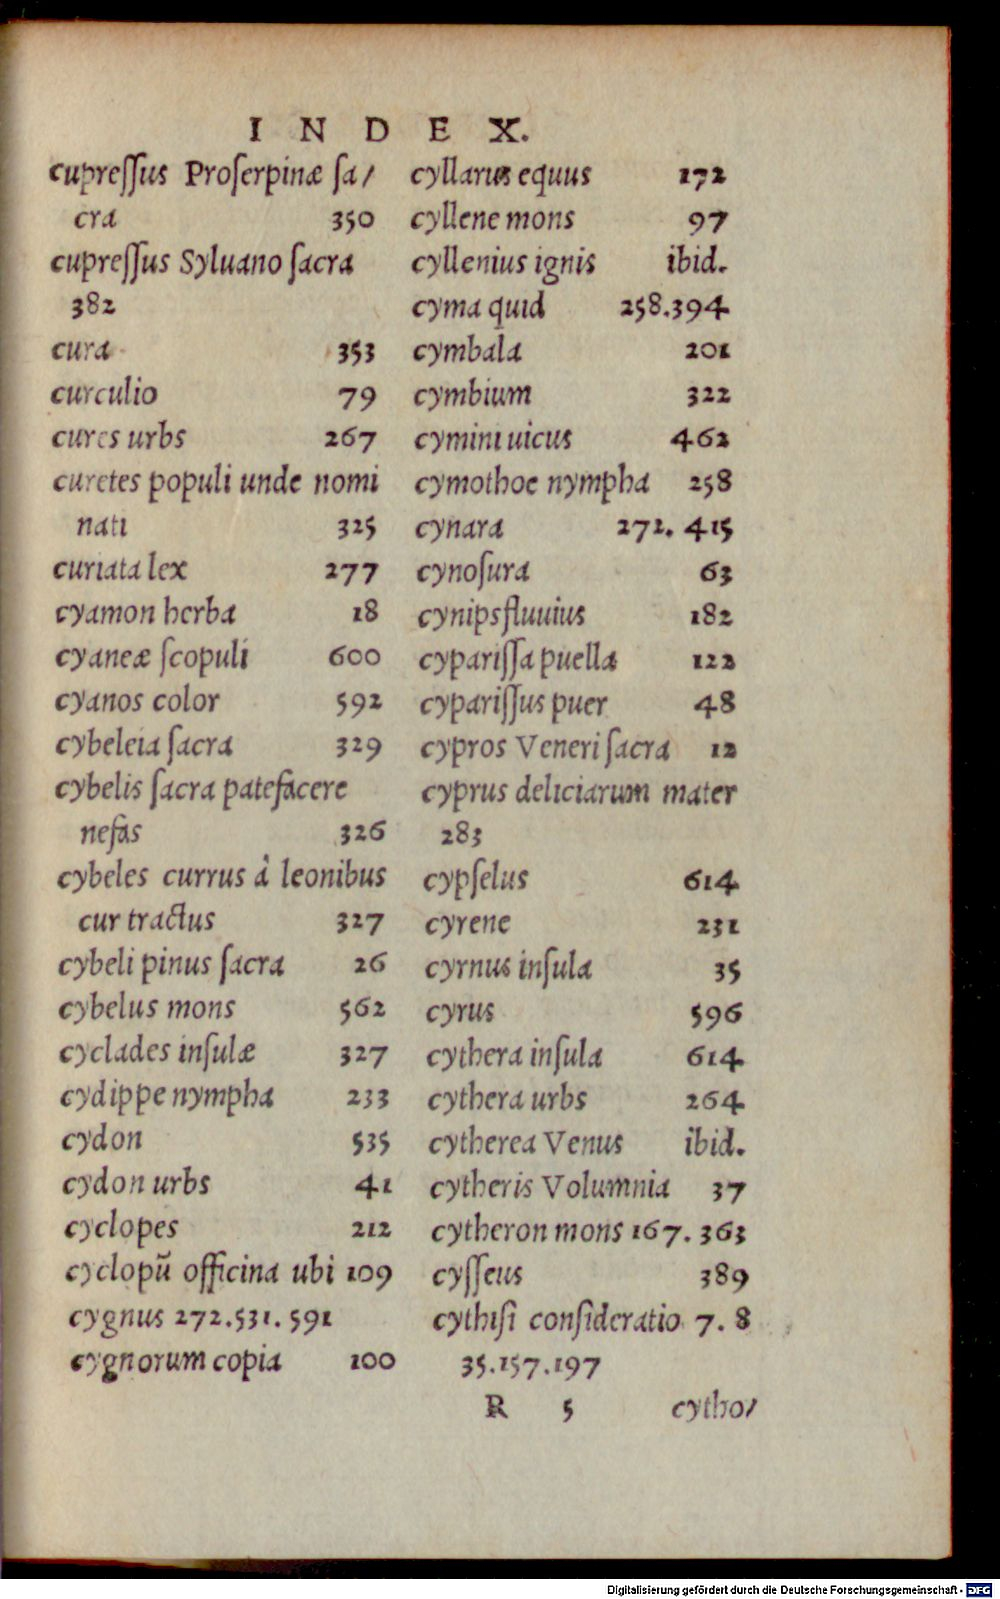 INDEX.
cupreſſus Proſerpinæ ſa/
cra 350
cupreſſus Syluano ſacra
382
cura 353
curculio 79
cures urbs 267
curetes populi unde nomi
nati 325
curiata lex 277
cyamon herba 18
cyaneæ ſcopuli 600
cyanos color 592
cybeleia ſacra 329
cybelis ſacra patefacere
nefas 326
cybeles currus à leonibus
cur tractus 327
cybeli pinus ſacra 26
cybelus mons 562
cyclades inſulæ 327
cydippe nympha 233
cydon 535
cydon urbs 41
cyclopes 212
cyclopũ officina ubi 109
cygnus 272.531.591
cygnorum copia 100
cyllarus equus 172
cyllene mons 97
cyllenius ignis ibid.
cyma quid 258.394
cymbala 201
cymbium 322
cymini uicus 462
cymothoe nympha 258
cynara 272. 415
cynoſura 63
cynips fluuius 182
cypariſſa puella 122
cypariſſus puer 48
cypros Veneri ſacra 12
cyprus deliciarum mater
283
cypſelus 614
cyrene 231
cyrnus inſula 35
cyrus 596
cythera inſula 614
cythera urbs 264
cytherea Venus ibid.
cytheris Volumnia 37
cytheron mons 167. 363
cyſſeus 389
cythiſi conſideratio 7. 8
35.157.197
R 5 cytho/
Digitalisierung gefördert durch die Deutsche Forschungsgemeinschaft - DFG